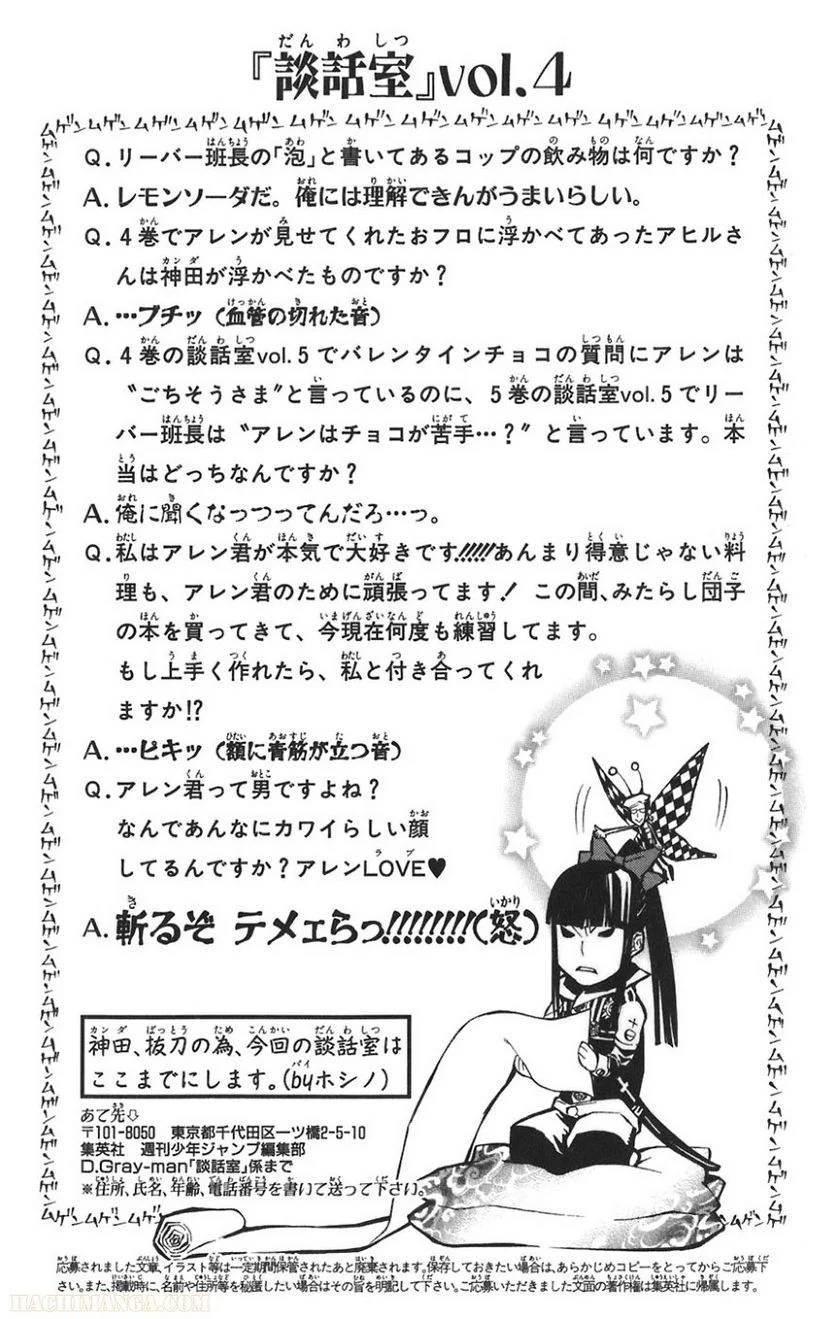 『談話室』vol.4
Q.リーバー班長の「泡」と書いてあるコップの飲み物は何ですか?
A.レモンソーダだ。俺には理解できんがうまいらしい。
Q.4巻でアレンが見せてくれたおフロに浮かべてあったアヒルさ
んは神田が浮かべたものですか?
A.…ブチッ(血管の切れた音)
Q.4巻の談話室vol.5でバレンタインチョコの質問にアレンは
〝ごちそうさま〟と言っているのに、5巻の談話室vol.5でリー
バー班長は〝アレンはチョコが苦手…?〟と言っています。本
当はどっちなんですか?
A.俺に聞くなっつってんだろ…っ。
Q.私はアレン君が本気で大好きです!!!!!あんまり得意じゃない料
理も、アレン君のために頑張ってます! この間、みたらし団子
の本を買ってきて、今現在何度も練習してます。
もし上手く作れたら、私と付き合ってくれ
ますか!?
A.…ピキッ(額に青筋が立つ音)
Q.アレン君って男ですよね?
なんであんなにカワイらしい顔
してるんですか?アレンLOVE♥
A.斬るぞ テメェらっ!!!!!!!!(怒)
神田、抜刀の為、今回の談話室は
ここまでにします。(byホシノ)
あて先⇩
〒101-8050 東京都千代田区一ツ橋2-5-10
集英社 週刊少年ジャンプ編集部
D.Gray-man「談話室」係まで
※住所、氏名、年齢、電話番号を書いて送って下さい。
応募されました文章、イラスト等は一定期間保管されたあと廃棄されます。保存しておきたい場合は、あらかじめコピーをとってからご応募下
さい。また、掲載時に、名前や住所等を秘匿したい場合はその旨を明記して下さい。ご応募いただきました文面の著作権は集英社に帰属します。
HACHIMANGA.COM